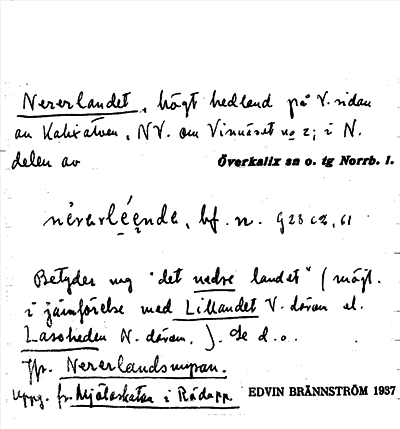 Nererlandet, högt hedland på V. sidan
av Kalixälven, NV. om Vinnäset no 2; i N.
delen av Överkalix sn o. tg Norrb. l.
bf. n. G 28 c2, 61
Betyder nog "det nedre landet" (möjl.
i jämförelse med Lillandet V. däran el.
Lassheden N. däran.). Se d. o.
Jfr. Nererlandsmyran.
Uppg. fr. i Rödupp. EDVIN BRÄNNSTRÖM 1937